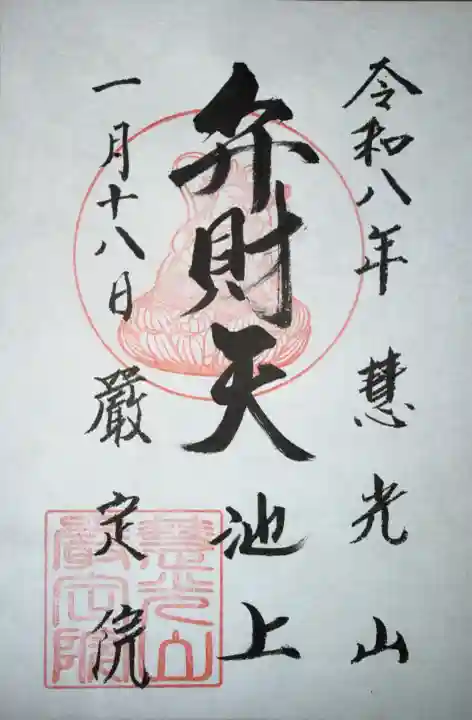 令和八年 慧光山
弁財天 池上
一月十八日 嚴定院
慧光山
嚴定院